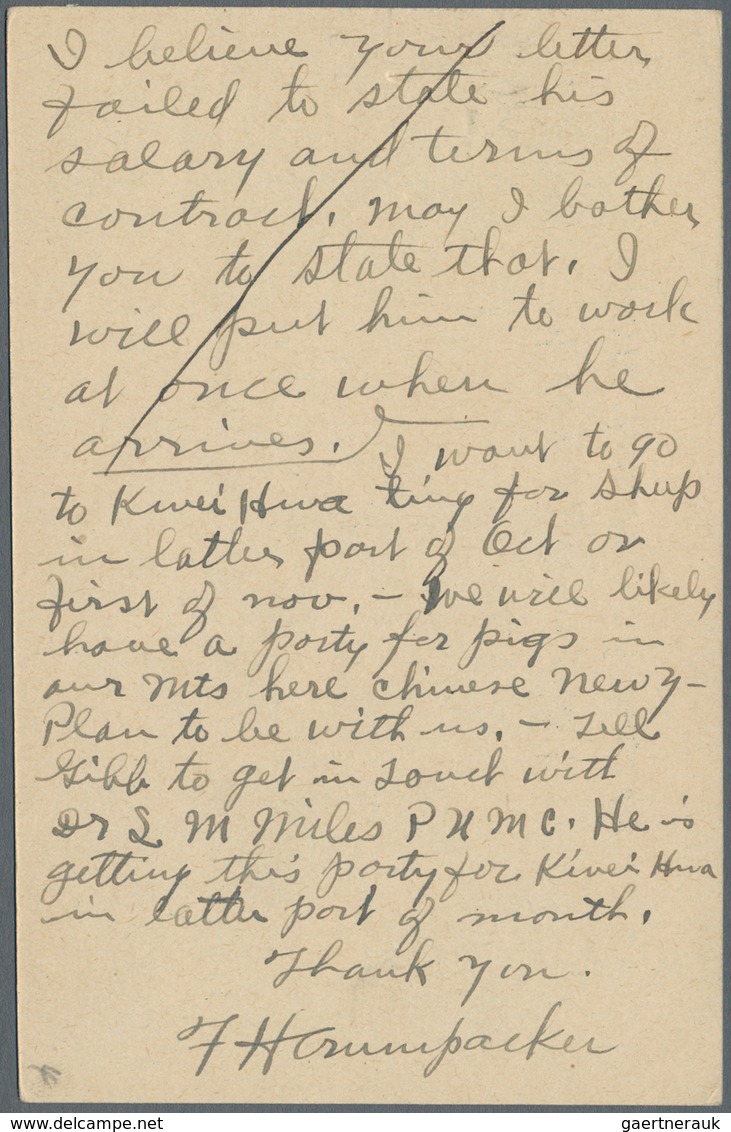 I believe your letter
failed to state his
salary and terms of
contract. May I bother
you to state that. I
will put him to work
at once when he
arrives. I want to go
to Kwei Hwa ting for sheep
in latter part of Oct or
first of nov. - We will likely
have a party for pigs in
our mts here chinese new y-
Plan to be with us. - Tell
Gibb to get in touch with
Dr L M Miles P U M C. He is
getting this party for Kwei Hwa
in latter part of month.
Thank you.
F H Crumpacker
gaertnerauk